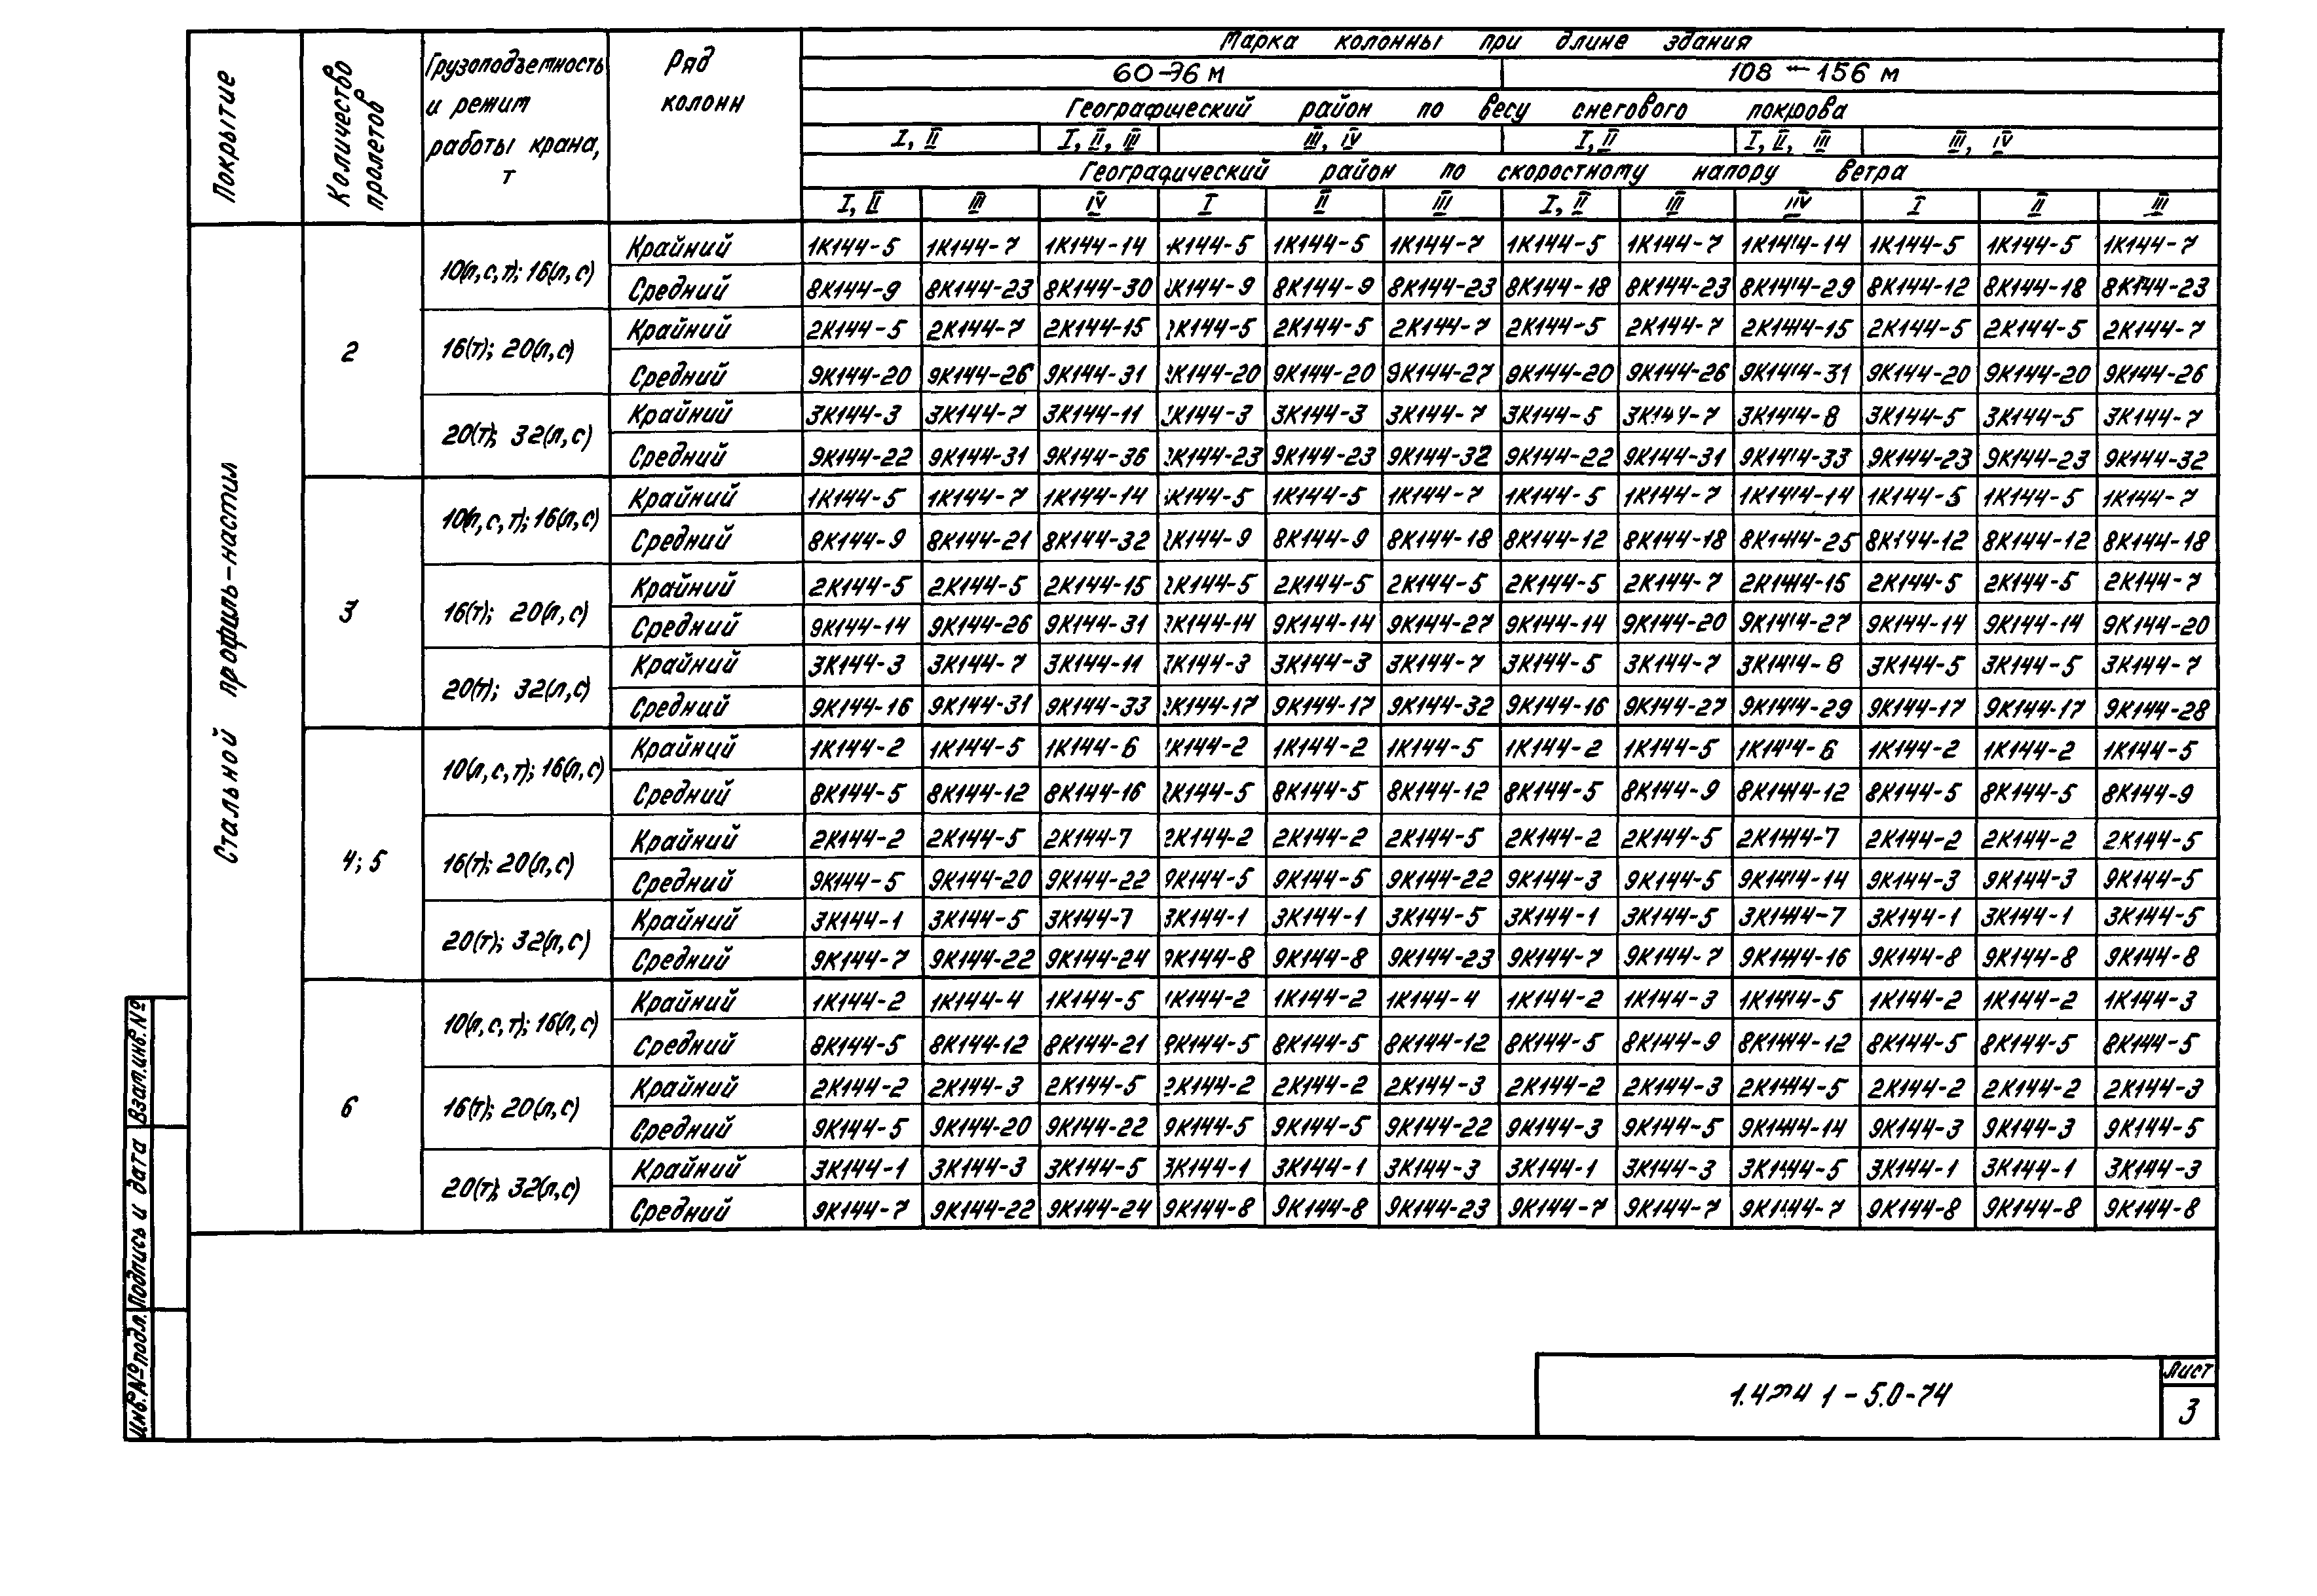 Покрытие
Количество пролетов
Грузоподъемность и режим работы крана, т
Ряд колонн
Марка колонны при длине здания
60-96 м 108-156 м
Географический район по весу снегового покрова
I, II I, II, III III, IV I, II I, II, III III, IV
Географический район по скоростному напору ветра
I, II III IV I II III I, II III IV I II III
Стальной профиль-настил
2
10(л,с,т); 16(л,с)
Крайний 1К144-5 1К144-7 1К144-14 1К144-5 1К144-5 1К144-7 1К144-5 1К144-7 1К144-14 1К144-5 1К144-5 1К144-7
Средний 8К144-9 8К144-23 8К144-30 8К144-9 8К144-9 8К144-23 8К144-18 8К144-23 8К144-29 8К144-12 8К144-18 8К144-23
16(т); 20(л,с)
Крайний 2К144-5 2К144-7 2К144-15 2К144-5 2К144-5 2К144-7 2К144-5 2К144-7 2К144-15 2К144-5 2К144-5 2К144-7
Средний 9К144-20 9К144-26 9К144-31 9К144-20 9К144-20 9К144-27 9К144-20 9К144-26 9К144-31 9К144-20 9К144-20 9К144-26
20(т); 32(л,с)
Крайний 3К144-3 3К144-7 3К144-11 3К144-3 3К144-3 3К144-7 3К144-5 3К144-7 3К144-8 3К144-5 3К144-5 3К144-7
Средний 9К144-22 9К144-31 9К144-36 9К144-23 9К144-23 9К144-32 9К144-22 9К144-31 9К144-33 9К144-23 9К144-23 9К144-32
3
10(л,с,т); 16(л,с)
Крайний 1К144-5 1К144-7 1К144-14 1К144-5 1К144-5 1К144-7 1К144-5 1К144-7 1К144-14 1К144-5 1К144-5 1К144-7
Средний 8К144-9 8К144-21 8К144-32 8К144-9 8К144-9 8К144-18 8К144-12 8К144-18 8К144-25 8К144-12 8К144-12 8К144-18
16(т); 20(л,с)
Крайний 2К144-5 2К144-5 2К144-15 2К144-5 2К144-5 2К144-5 2К144-5 2К144-7 2К144-15 2К144-5 2К144-5 2К144-7
Средний 9К144-14 9К144-26 9К144-31 9К144-14 9К144-14 9К144-27 9К144-14 9К144-20 9К144-27 9К144-14 9К144-14 9К144-20
20(т); 32(л,с)
Крайний 3К144-3 3К144-7 3К144-11 3К144-3 3К144-3 3К144-7 3К144-5 3К144-7 3К144-8 3К144-5 3К144-5 3К144-7
Средний 9К144-16 9К144-31 9К144-33 9К144-17 9К144-17 9К144-32 9К144-16 9К144-27 9К144-29 9К144-17 9К144-17 9К144-28
4; 5
10(л,с,т); 16(л,с)
Крайний 1К144-2 1К144-5 1К144-6 1К144-2 1К144-2 1К144-5 1К144-2 1К144-5 1К144-6 1К144-2 1К144-2 1К144-5
Средний 8К144-5 8К144-12 8К144-16 8К144-5 8К144-5 8К144-12 8К144-5 8К144-9 8К144-12 8К144-5 8К144-5 8К144-9
16(т); 20(л,с)
Крайний 2К144-2 2К144-5 2К144-7 2К144-2 2К144-2 2К144-5 2К144-2 2К144-5 2К144-7 2К144-2 2К144-2 2К144-5
Средний 9К144-5 9К144-20 9К144-22 9К144-5 9К144-5 9К144-22 9К144-3 9К144-5 9К144-14 9К144-3 9К144-3 9К144-5
20(т); 32(л,с)
Крайний 3К144-1 3К144-5 3К144-7 3К144-1 3К144-1 3К144-5 3К144-1 3К144-5 3К144-7 3К144-1 3К144-1 3К144-5
Средний 9К144-7 9К144-22 9К144-24 9К144-8 9К144-8 9К144-23 9К144-7 9К144-7 9К144-16 9К144-8 9К144-8 9К144-8
6
10(л,с,т); 16(л,с)
Крайний 1К144-2 1К144-4 1К144-5 1К144-2 1К144-2 1К144-4 1К144-2 1К144-3 1К144-5 1К144-2 1К144-2 1К144-3
Средний 8К144-5 8К144-12 8К144-21 8К144-5 8К144-5 8К144-12 8К144-5 8К144-9 8К144-12 8К144-5 8К144-5 8К144-5
16(т); 20(л,с)
Крайний 2К144-2 2К144-3 2К144-5 2К144-2 2К144-2 2К144-3 2К144-2 2К144-3 2К144-5 2К144-2 2К144-2 2К144-3
Средний 9К144-5 9К144-20 9К144-22 9К144-5 9К144-5 9К144-22 9К144-3 9К144-5 9К144-14 9К144-3 9К144-3 9К144-5
20(т); 32(л,с)
Крайний 3К144-1 3К144-3 3К144-5 3К144-1 3К144-1 3К144-3 3К144-1 3К144-3 3К144-5 3К144-1 3К144-1 3К144-3
Средний 9К144-7 9К144-22 9К144-24 9К144-8 9К144-8 9К144-23 9К144-7 9К144-7 9К144-7 9К144-8 9К144-8 9К144-8
Взам.инв.№
Подпись и дата
Инв.№ подл.
1-5.0-74
Лист
3